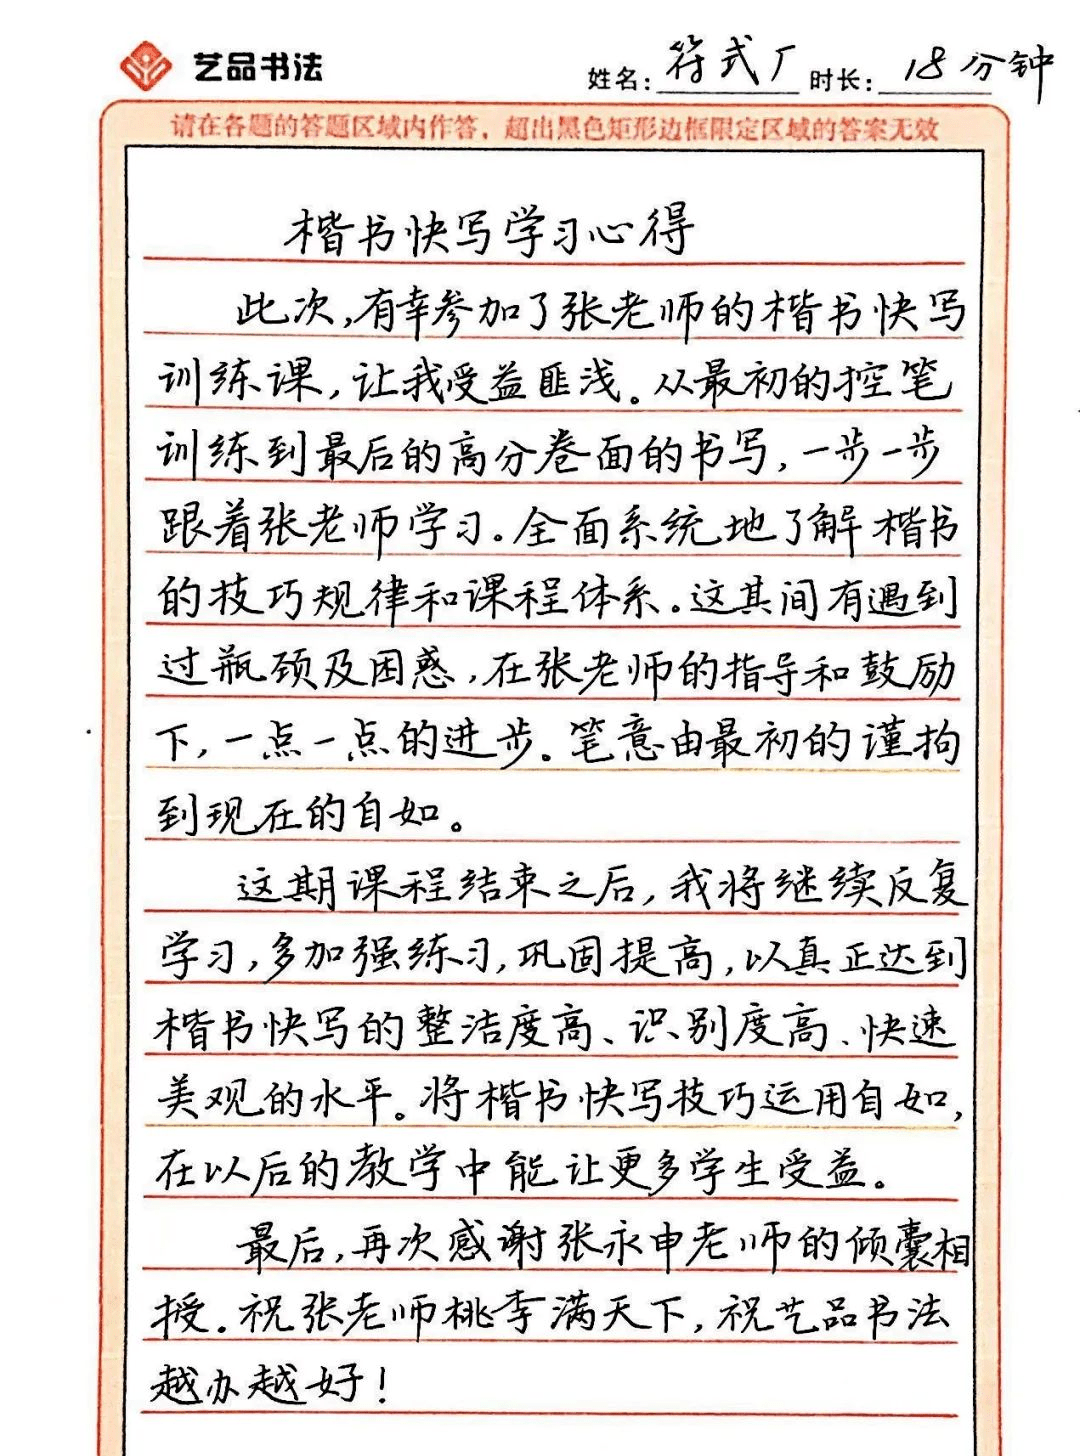 艺品书法
姓名: 符式厂 时长: 18分钟
请在各题的答题区域内作答，超出黑色矩形边框限定区域的答案无效
楷书快写学习心得
此次,有幸参加了张老师的楷书快写
训练课,让我受益匪浅。从最初的控笔
训练到最后的高分卷面的书写,一步一步
跟着张老师学习。全面系统地了解楷书
的技巧规律和课程体系。这其间有遇到
过瓶颈及困惑,在张老师的指导和鼓励
下,一点一点的进步。笔意由最初的谨拘
到现在的自如。
这期课程结束之后,我将继续反复
学习,多加强练习,巩固提高,以真正达到
楷书快写的整洁度高、识别度高、快速
美观的水平。将楷书快写技巧运用自如,
在以后的教学中能让更多学生受益。
最后,再次感谢张永申老师的倾囊相
授。祝张老师桃李满天下,祝艺品书法
越办越好!